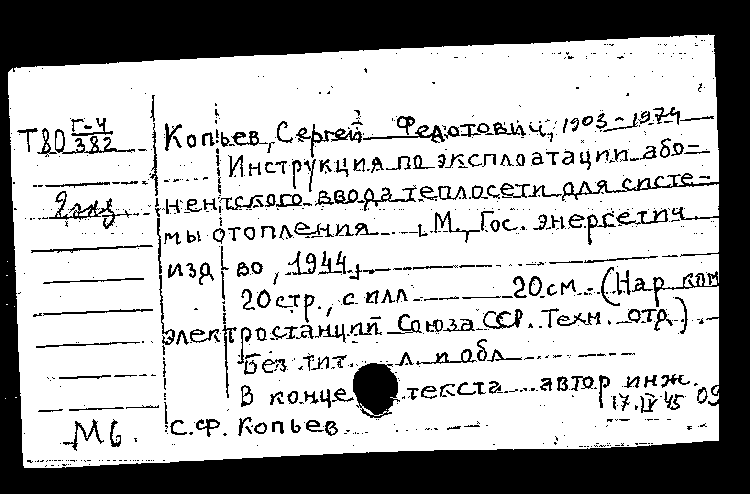 Т80 Г-4/382
Копьев, Сергей Федотович, 1903-1974
Инструкция по эксплоатации або-
2 экз.
нентского ввода теплосети для систе-
мы отопления М., Гос. энергетич
изд-во, 1944.
20 стр., с илл 20 см. (Нар ком
электростанций Союза ССР. Техн. отд).
Без тит. л. и обл
В конце текста автор инж.
17.IV 45 09
Мб. С.Ф. Копьев